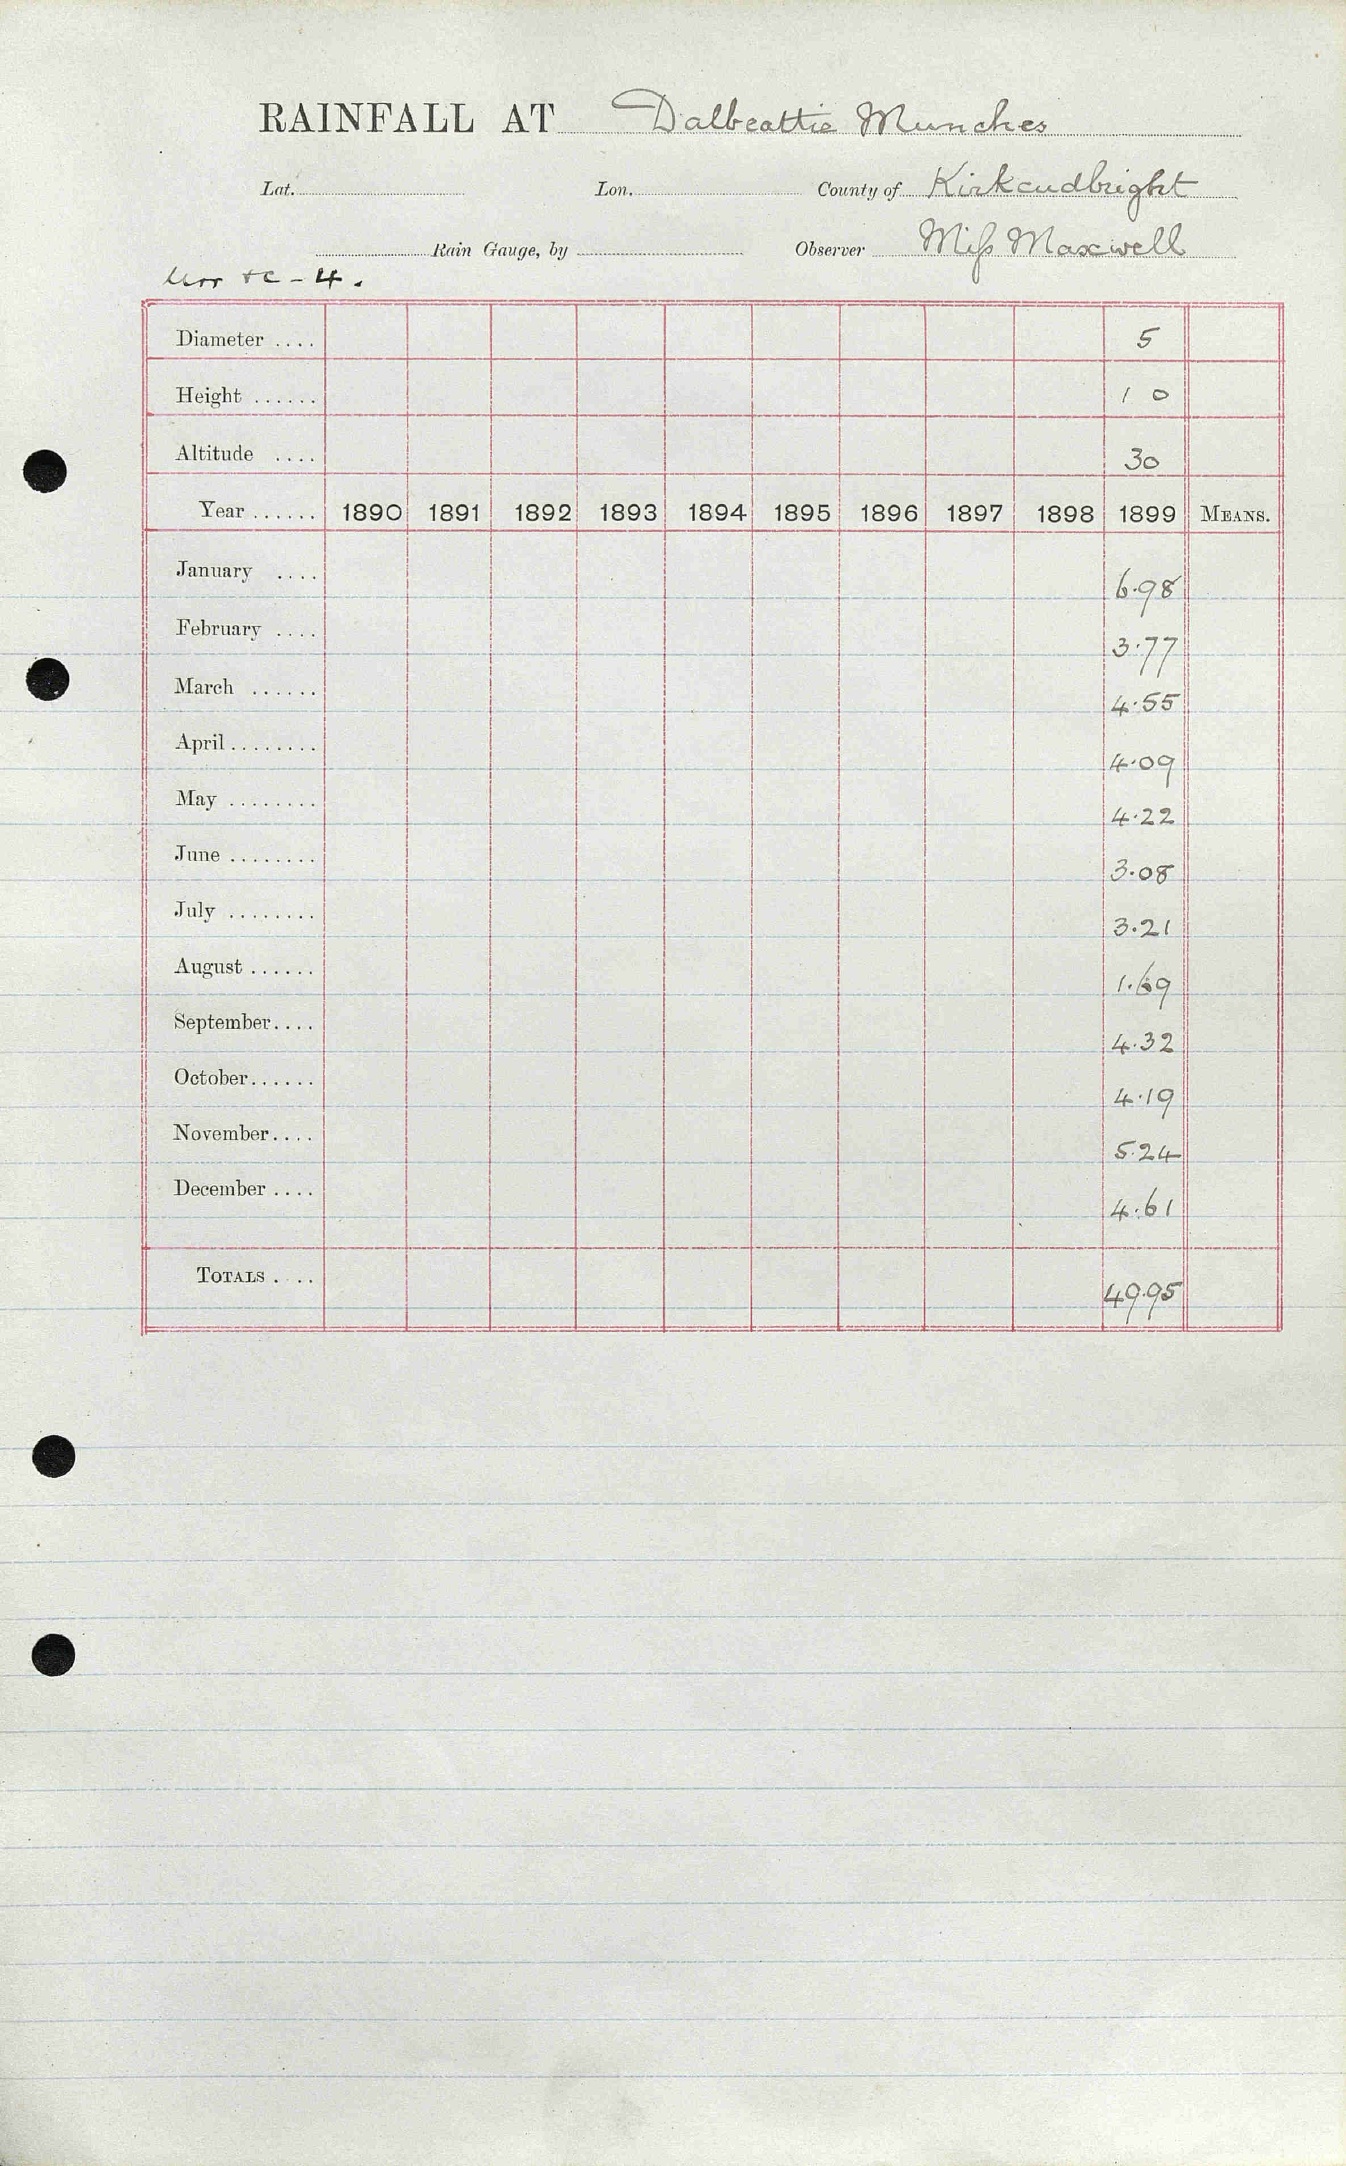 RAINFALL AT Dalbeattie Munches
Lat. Lon. County of Kirkcudbright
Rain Gauge, by Observer Miss Maxwell
Urr &c - 4.
Diameter .... 5
Height ...... 1 0
Altitude .... 30
Year ...... 1890 1891 1892 1893 1894 1895 1896 1897 1898 1899 MEANS.
January .... 6.98
February .... 3.77
March ...... 4.55
April ........ 4.09
May ........ 4.22
June ........ 3.08
July ........ 3.21
August ...... 1.69
September.... 4.32
October...... 4.19
November.... 5.24
December .... 4.61
TOTALS .... 49.95